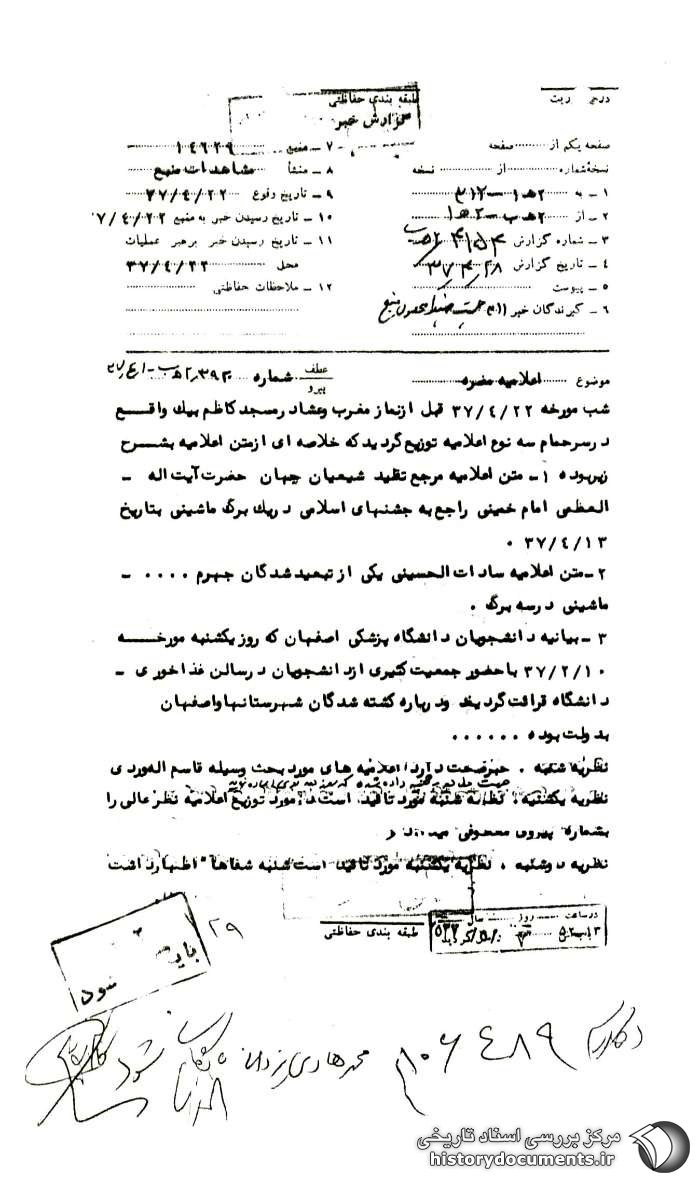 درجه ... ریت
طبقه بندی حفاظتی
گزارش خبر
صفحه یکم از ........ صفحه
نسخه شماره ........ از ........ نسخه
۱ ـ به ۲هـ۱ ـ ۳۱۲
۲ ـ از ۲هـ ب ـ ۲هـ۱
۳ ـ شماره گزارش
۴ ـ تاریخ گزارش ۳۷/۴/۲۸
۵ ـ پیوست
۶ ـ گیرندگان خبر
۷ ـ منبع ۱۴۶۲۹
۸ ـ منشأ مشاهدات منبع
۹ ـ تاریخ وقوع ۳۷/۴/۲۲
۱۰ ـ تاریخ رسیدن خبر به منبع ۷/۴/۲۲
۱۱ ـ تاریخ رسیدن خبر برهبر عملیات
محل ۳۷/۴/۲۳
۱۲ ـ ملاحظات حفاظتی
موضوع اعلامیه مضره
عطف
پیرو
شماره
شب مورخه ۳۷/۴/۲۲ قبل ازنماز مغرب وعشاد رمسجد کاظم بیك واقـع
د رسرحمام سه نوع اعلامیه توزیع گردید که خلاصه ای ازمتن اعلامیه بشـرح
زیربوده ۱ـ متن اعلامیه مرجع تقلید شیعیان جهان حضرت آیت اله ـ
العظمی امام خمینی راجع به جشنهای اسلامی د ریك برگ ماشینی بتاریخ
۳۷/۴/۱۳ ۰
۲ـ متن اعلامیه سادات الحسینی یکی از تبعید شدگان جهرم ۰۰۰۰ ـ
ماشینی د رسه برگ ۰
۳ ـ بیانیه د انشجویان د انشگاه پزشکی اصفهان که روز یکشنبه مورخـــه
۳۷/۲/۱۰ با حضور جمعیت کثیری ازد انشجویان د رسالن غذ اخور ی ـ
د انشگاه قرائت گردید ود رباره کشته شد گان شهرستانها واصفهان
بد ولت بوده ۰۰۰۰۰۰
نظریه شنبه ۰ خبرصحت دارد اعلامیه های مورد بحث وسیله قاسم اله وردی
نظریه یکشنبه ، نظریه شنبه مورد تائید است د رمورد توزیع اعلامیه نظرعالی را
بشماره پیروی معطوفی میدارد
نظریه دوشنبه ، نظریه یکشنبه مورد تائید است شنبه شفاها" اظهارداشت
طبقه بندی حفاظتی
در ساعت ...... روز ...... سال
باید
شود
۲۹
محمد هادی
بایگانی شود
۸۰۶۴۸۹
مرکز بررسی اسناد تاریخی
historydocuments.ir